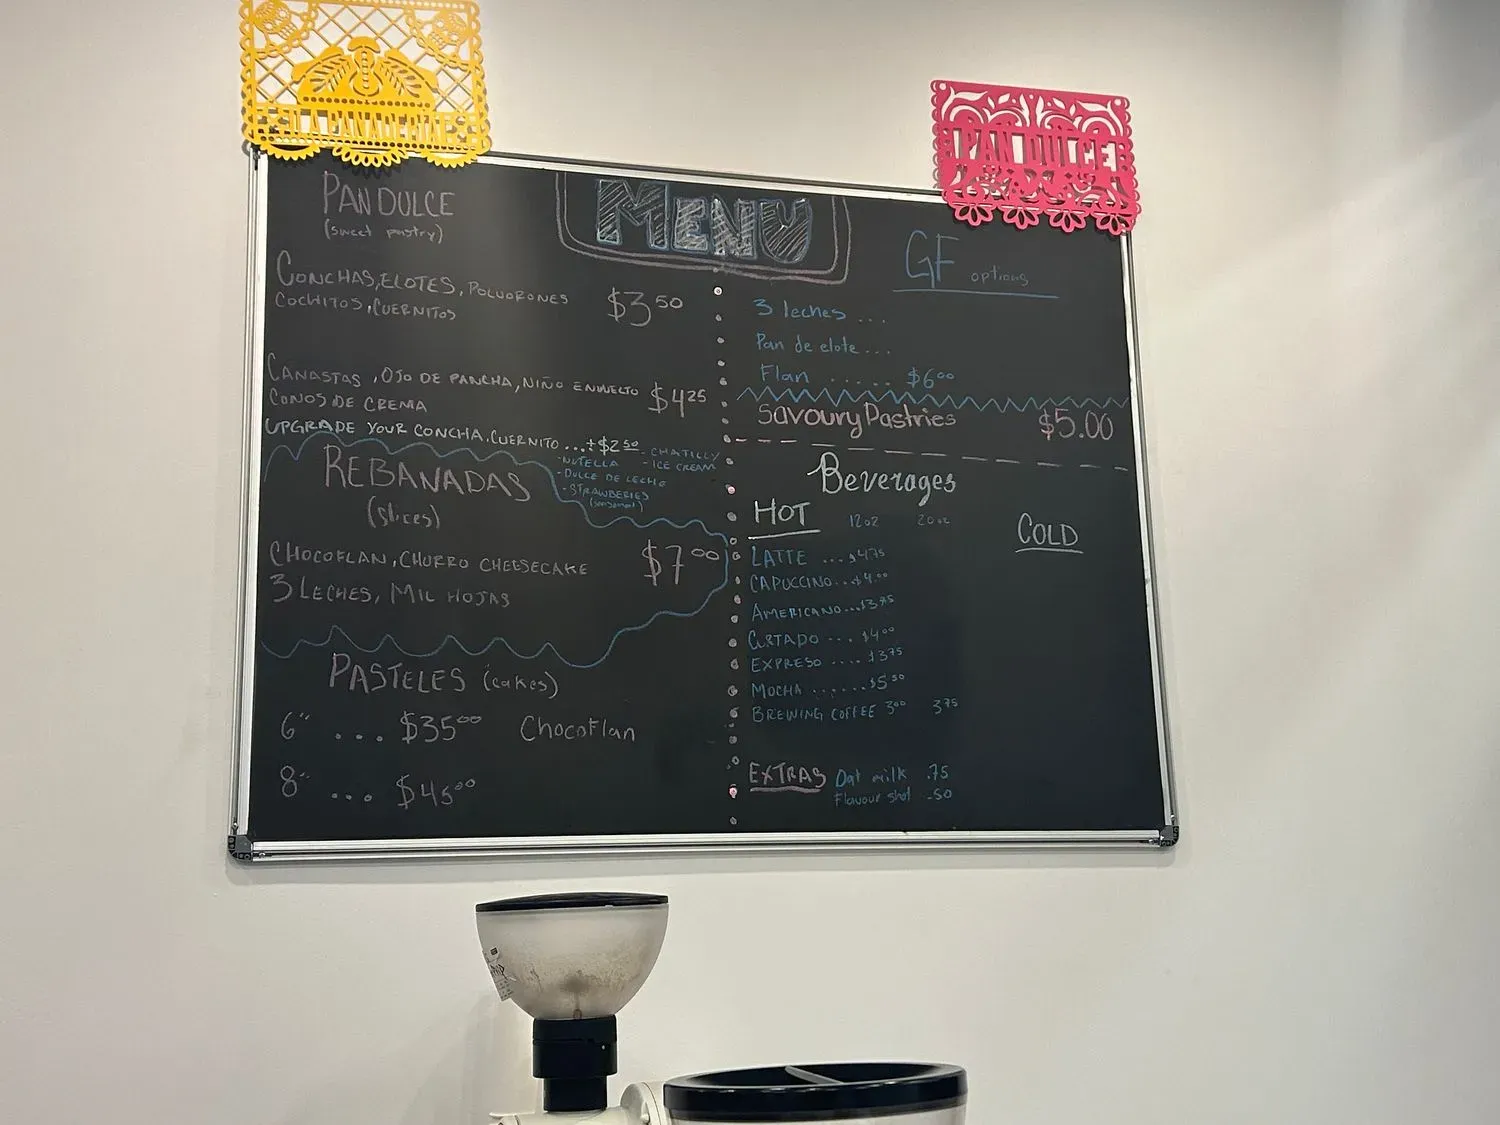 LA PANADERIA
PAN DULCE
MENU
PAN DULCE
(sweet pastry)
CONCHAS, ELOTES, POLVORONES $3.50
COCHITOS, CUERNITOS
CANASTAS, OJO DE PANCHA, NIÑO ENVUELTO $4.25
CONOS DE CREMA
UPGRADE YOUR CONCHA, CUERNITO ...+$2.50
- CHATILLY
- NUTELLA - ICE CREAM
- DULCE DE LECHE
- STRAWBERIES
(seasonal)
REBANADAS
(slices)
CHOCOFLAN, CHURRO CHEESECAKE $7.00
3 LECHES, MIL HOJAS
PASTELES (cakes)
6" ... $35.00 ChocoFlan
8" ... $45.00
GF options
3 leches ...
Pan de elote ...
Flan ..... $6.00
Savoury Pastries $5.00
Beverages
HOT 12oz 20oz
COLD
LATTE ...$4.75
CAPUCCINO...$4.00
AMERICANO...$3.75
CORTADO ....$4.00
EXPRESO ....$3.75
MOCHA ......$5.50
BREWING COFFEE 3.00 3.75
EXTRAS Oat milk .75
Flavour shot .50